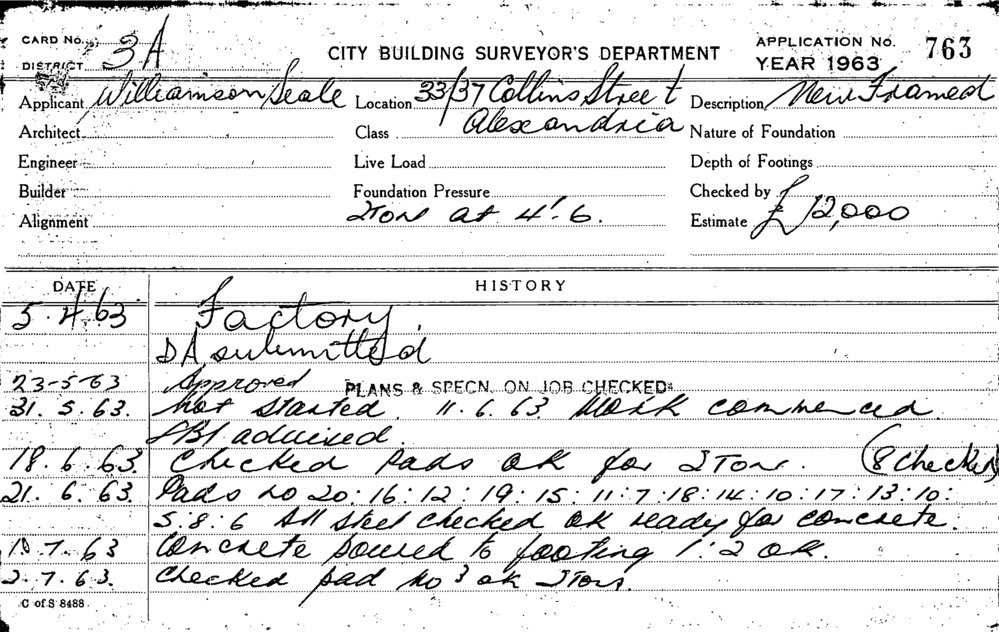 CARD No. 3A
DISTRICT
CITY BUILDING SURVEYOR'S DEPARTMENT
APPLICATION No. 763
YEAR 1963
Applicant Williamson/Seale Location 33/37 Collins Street Description New Framed
Architect Class Alexandria Nature of Foundation
Engineer Live Load Depth of Footings
Builder Foundation Pressure Checked by
Alignment 2Tons at 4'.6. Estimate £12,000
DATE HISTORY
5.4.63 Factory.
DA submitted
23-5-63 Approved PLANS & SPECN. ON JOB CHECKED
31.5.63. Not started. 11.6.63 Work commenced
advised.
18.6.63. Checked Pads ok for 2Tons. (8 checked)
21.6.63. Pads no 20:16:12:19:15:11:7:18:14:10:17:13:10:
5:8:6 All steel checked ok ready for concrete.
7.63 Concrete poured to footing 1:2 ok.
2.7.63. Checked pad no 3 ok 2Tons.
C of S 8488